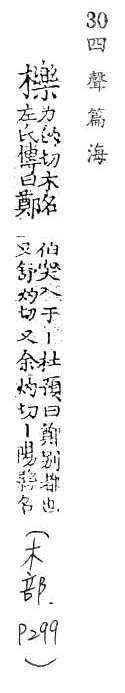 30四聲篇海
櫟力的切木名
左氏傳曰鄭
伯突入于丨杜預曰鄭別都也
又舒灼切又余灼切丨陽縣名
(木部. P299)